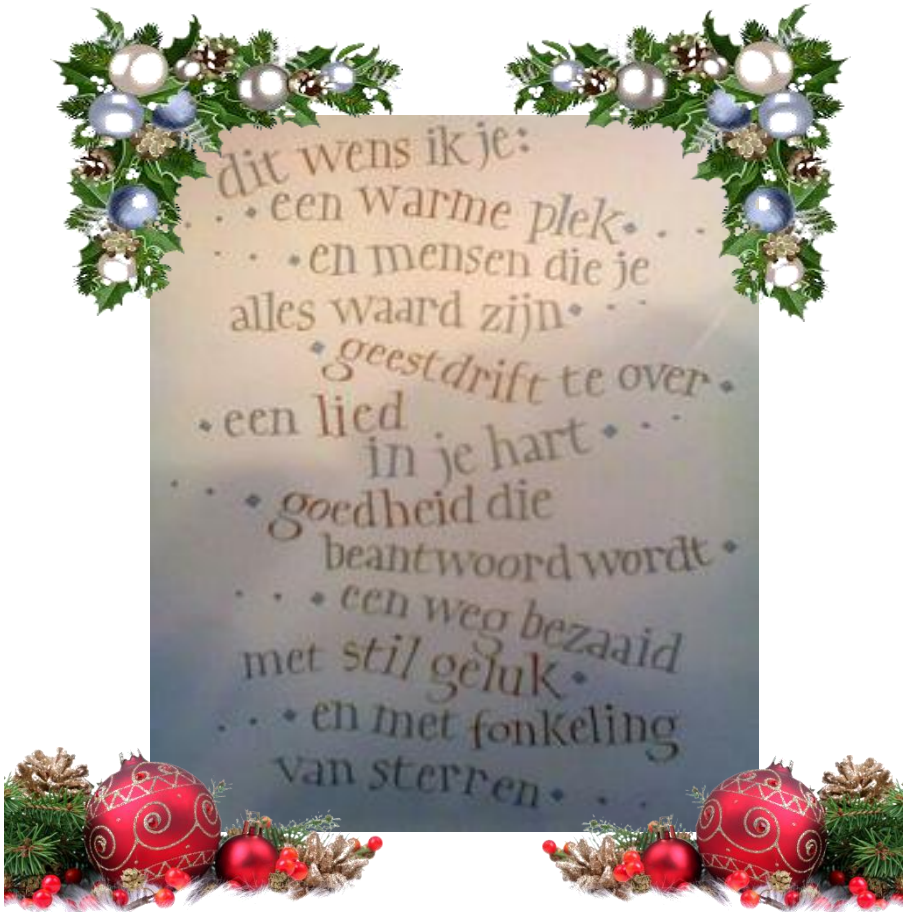 dit wens ik je:
een warme plek
en mensen die je
alles waard zijn
geestdrift te over
een lied
in je hart
goedheid die
beantwoord wordt
een weg bezaaid
met stil geluk
en met fonkeling
van sterren